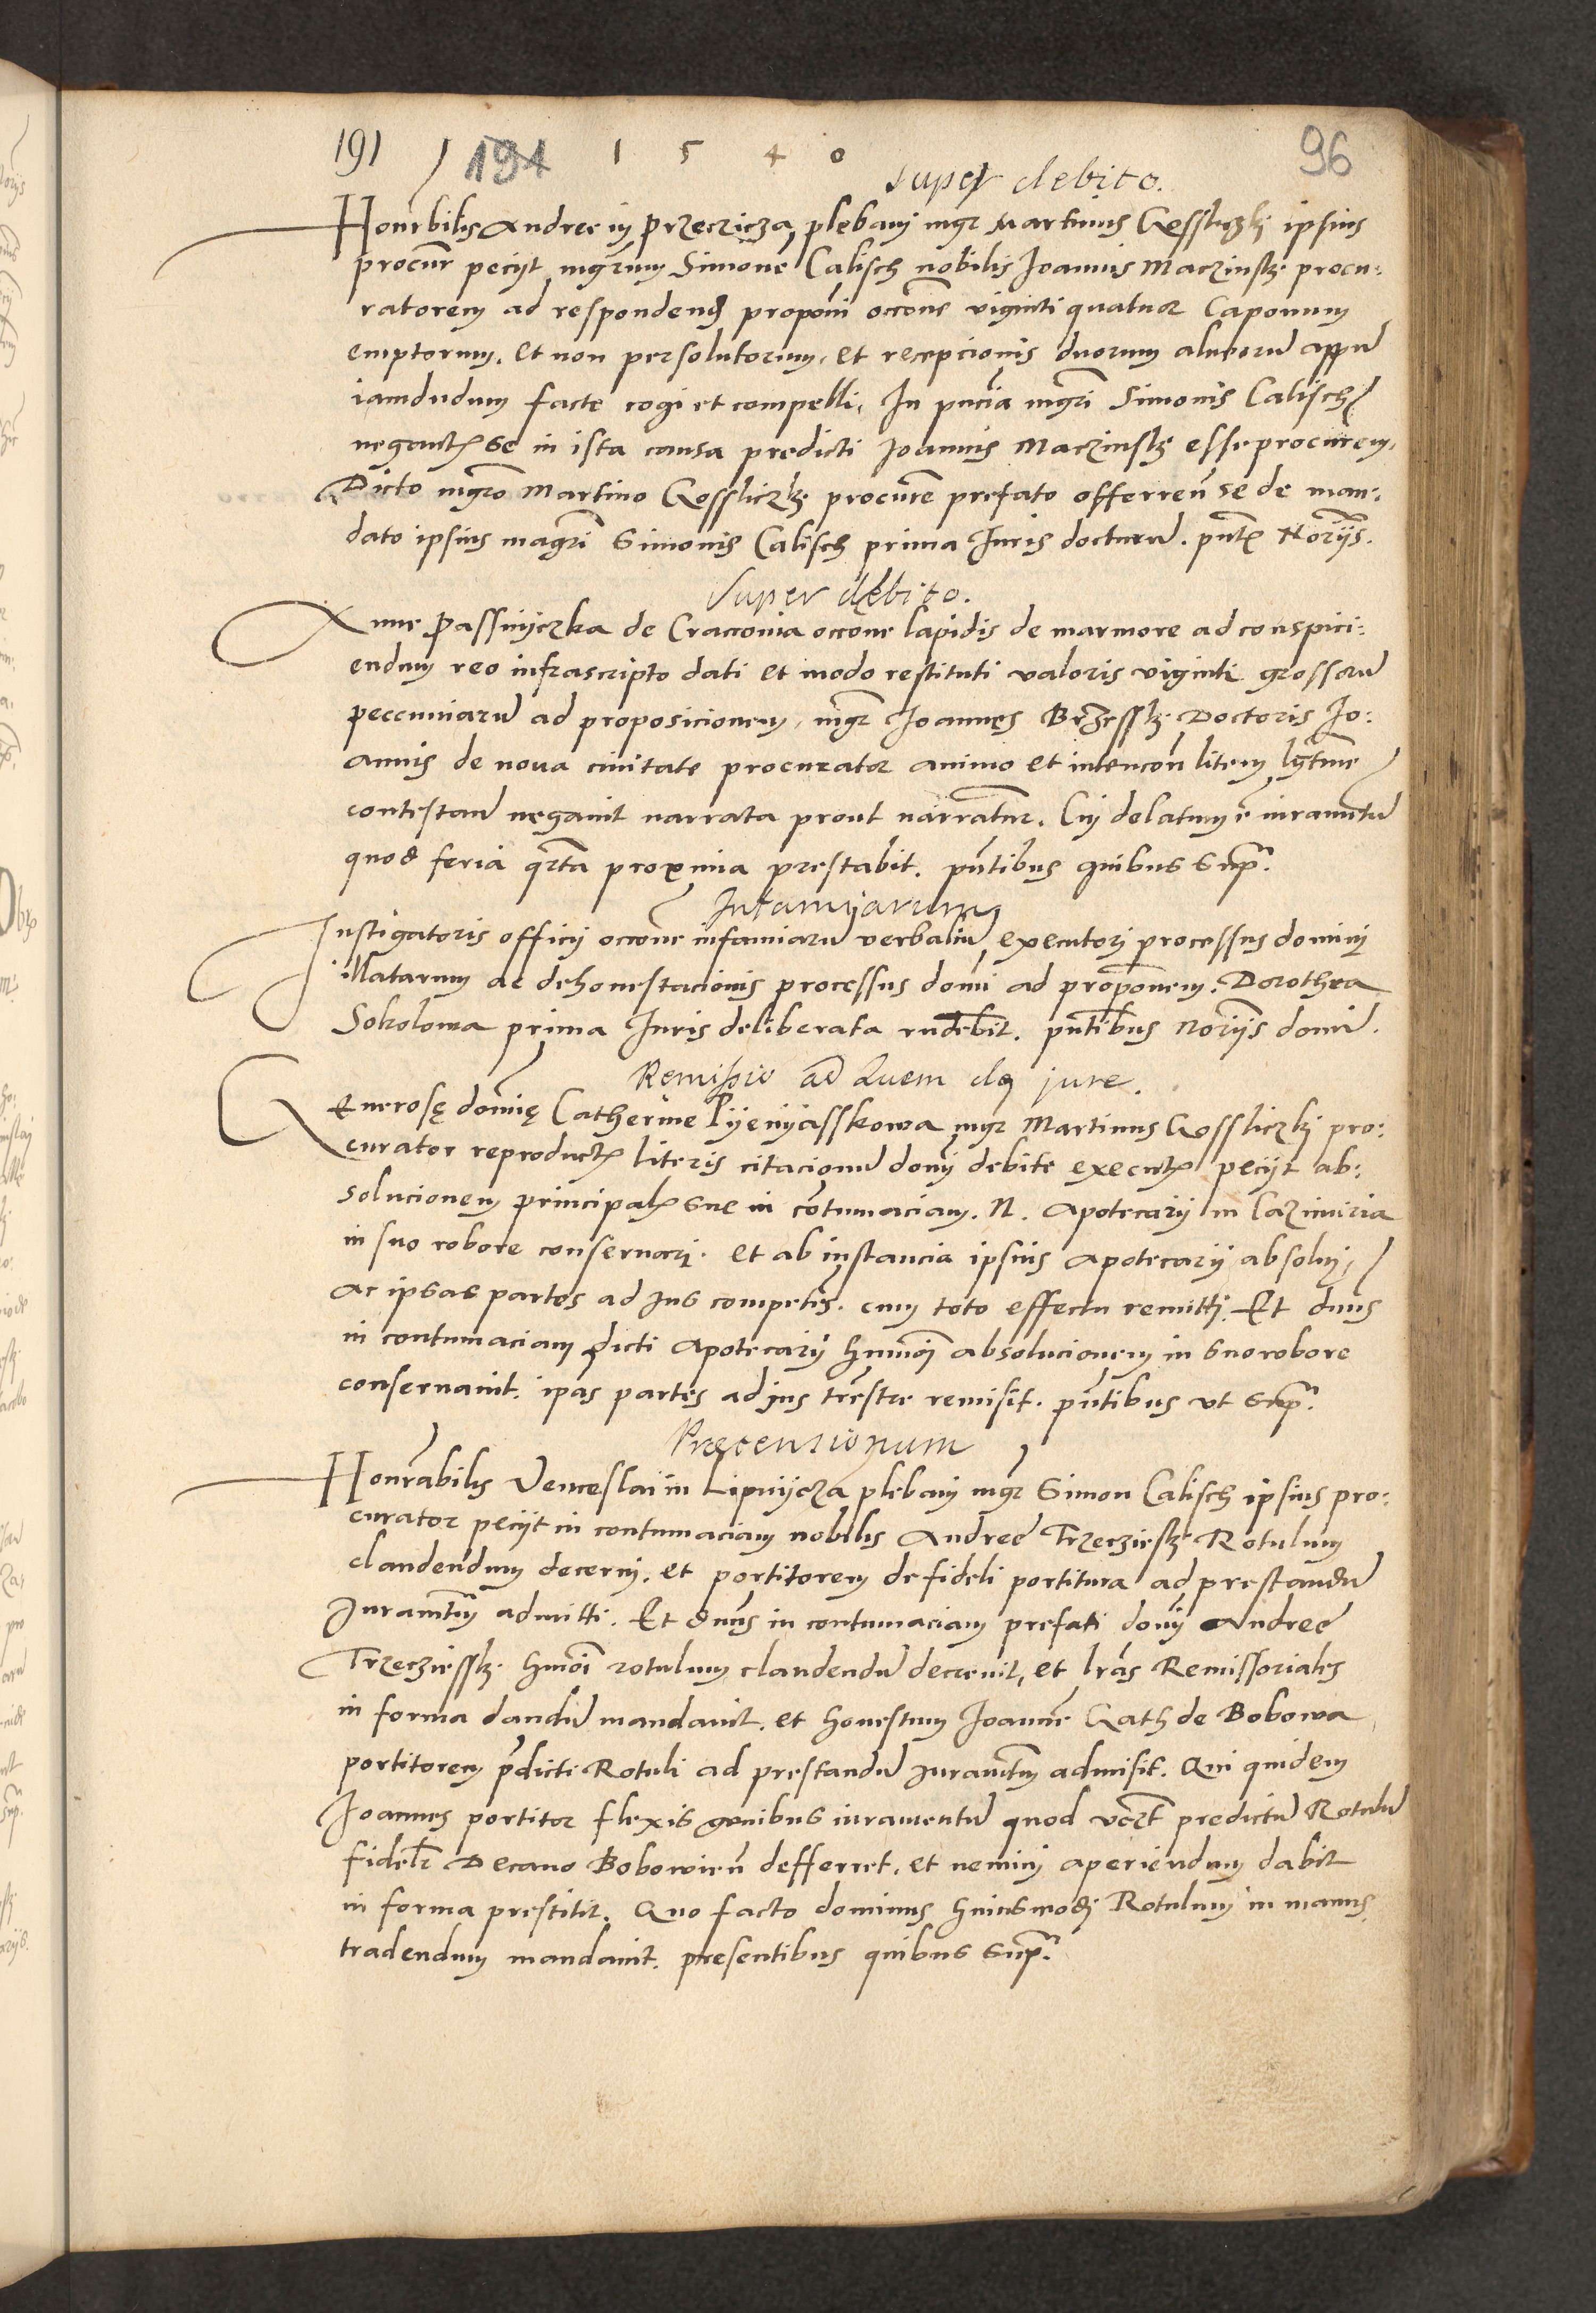 191 191 1 5 4 0 96
Super debito.
Honrbilis Andree in Przeczicza plebani mgr Martinus Gossliczki ipsius
procur peciyt mgrum Simone Calisch nobilis Joannis Maczinski procu:
ratorem ad respondend proponi occone viginti quatuor Caponum
emptorum. et non persolutorum. et recepcionis duorum alueoru appu
iamdudum facte cogi et compelli. In pncia mgri Simonis Calisch
negant se in ista causa predicti Joannis Maczinski esse procurem.
Dicto mgro Martino Gossliczki procure prefato offerren se de man:
dato ipsius magri Simonis Calisch prima Juris docturu. pnt Noriis.
Super debito.
Anne Passinyczka de Cracovia occone lapidis de marmore ad conspici:
endum reo infrascripto dati et modo restituti valoris viginti grossoru
peccuniaru ad proposicionem, mgr Joannes Brzesski Doctoris Jo:
annis de noua ciuitate procurator animo et intencon litem lgtime
contestan negauit narrata prout narratur. Cui delatum e iuramtu
quod feria qrta proxima prestabit. pntibus quibus supra.
Infamiarum
Instigatoris officij occone infamiaru verbaliu executori processus dominj
illatarum ac dehonestacionis processus domi ad proponem. Dorothea
Sokolowa prima Juris deliberata rndebit. pntibus Noriis domi.
Remissio ad Quem de jure.
Generose domie Catherine Pyenyasskowa mgr Martinus Gossliczki pro:
curator reproduct literis citacionu domi debite execut peciyt ab:
solucionem principal sue in contumaciam. N. Apotecarij in Cazimiria
in suo robore conseruari. et ab instancia ipsius Apotecarij absolui,
ac ipsas partes ad Jus competens. cum toto effectu remitti. Et dnus
in contumaciam dicti Apotecarij hmoi absolucionem in suo robore
conseruauit. ipas partes ad jus trestre remisit. pntibus vt supra.
Praetensionum
Honrabilis Venceslai in Lipnycza plebani mgr Simon Calisch ipsius pro:
curator peciyt in contumaciam nobilis Andree Trzeczieski Rotulum
claudendum decerni. et portitorem de fideli portitura ad prestandu
Juramtum admitti. Et dnus in contumaciam prefati domi Andree
Trzeczesski hmoi rotulum claudendu decreuit, et lras Remissoriales
in forma dandu mandauit. et honestum Joanne Gath de Bobowa
portitorem pdicti Rotuli ad prestandu juramtum admisit. Qui quidem
Joannes portitor flexis genibus iuramentu quod vert predictu Rotulu
fidelr Decano Bobowien defferret, et nemini aperiendum dabit
in forma prestitit. Quo facto dominus huiusmodi Rotulum in manus
tradendum mandauit. presentibus quibus supra.